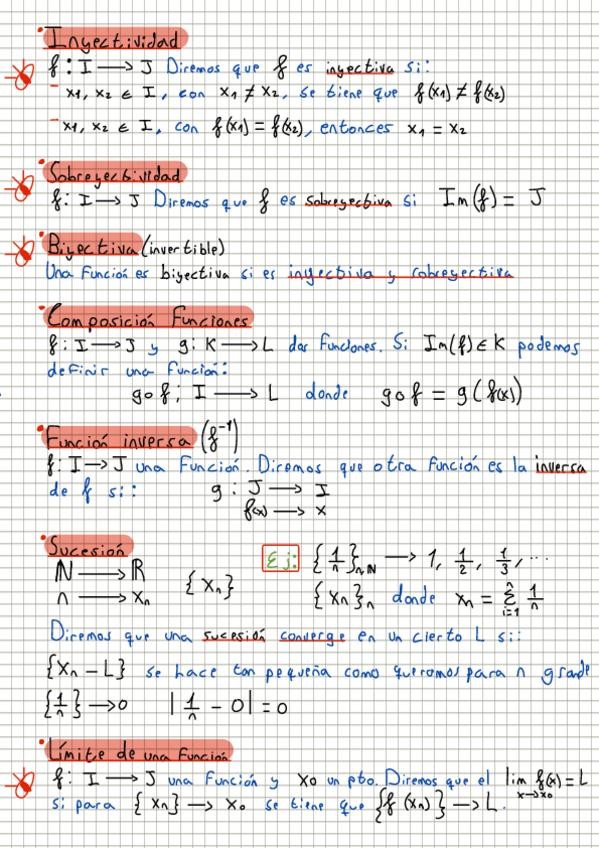 Inyectividad
f: I → J Diremos que f es inyectiva si:
- x1, x2 ∈ I, con x1 ≠ x2, se tiene que f(x1) ≠ f(x2)
- x1, x2 ∈ I, con f(x1) = f(x2), entonces x1 = x2
Sobreyectividad
f: I → J Diremos que f es sobreyectiva si Im(f) = J
Biyectiva (invertible)
Una función es biyectiva si es inyectiva y sobreyectiva
Composición Funciones
f: I → J y g: K → L dos funciones. Si Im(f) ∈ K podemos
definir una función:
g o f; I → L donde g o f = g(f(x))
Función inversa (f⁻¹)
f: I → J una función. Diremos que otra función es la inversa
de f si: g: J → I
f(x) → x
Sucesión
ℕ → ℝ {xn} Ej: {1/n}n∈ℕ → 1, 1/2, 1/3, ...
n → xn {xn}n donde xn = Σ i=1 n 1/n
Diremos que una sucesión converge en un cierto L si:
{xn - L} se hace tan pequeña como queramos para n grande
{1/n} → 0 |1/n - 0| = 0
Límite de una función
f: I → J una función y x0 un pto. Diremos que el lim x→x0 f(x) = L
si para {xn} → x0 se tiene que {f(xn)} → L.